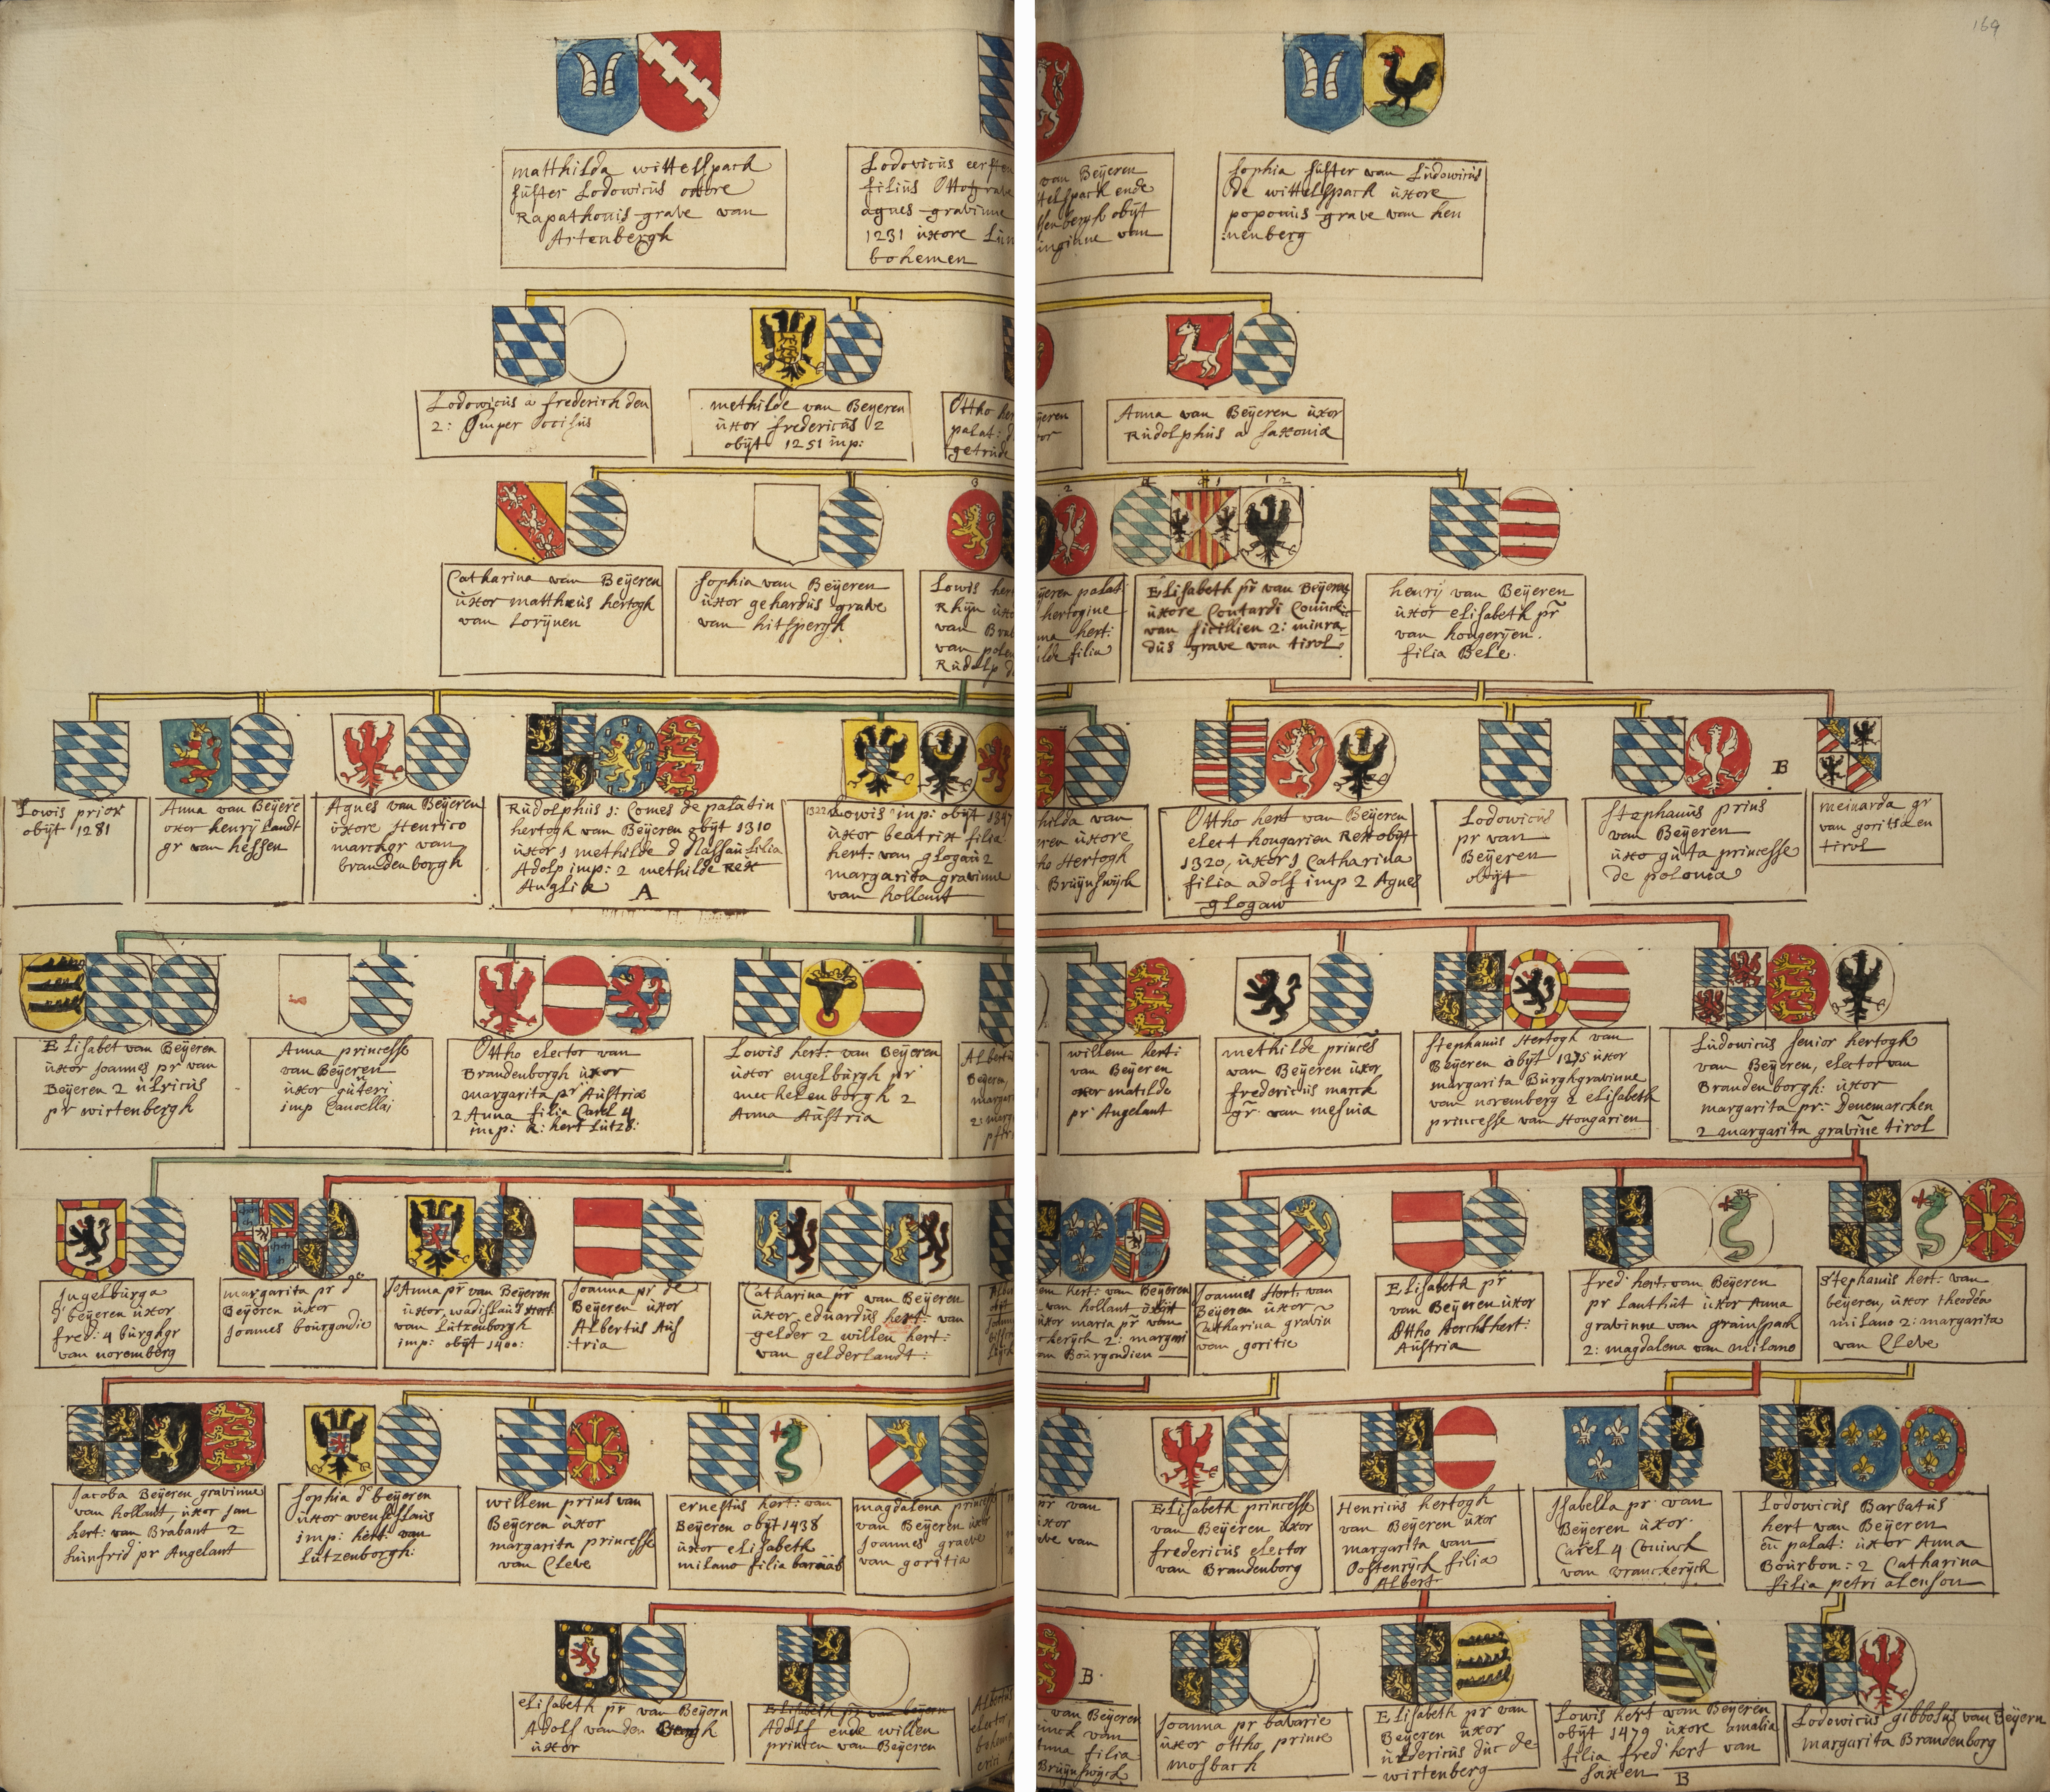 169
matthilda wittelspach
suster Lodowicus
Rapathonis grave van
Artenbergh
Lodovicus eersten
filius Otto grave
agnes gravinne
1231 uxore Lun
bohemen
van Beÿeren
telspach ende
obijt
van
Sophia suster van Ludowicus
de wittelspach uxore
poponis grave van hen
:nenberg
Lodowicus a frederich den
2: Imper occisus
methilde van Beyeren
uxor fredericus 2
obijt 1251 imp:
Otto her
palat: d
getrude
ÿeren
or
Anna van Beÿeren uxor
Rudolphus a saxonia
Catharina van Beÿeren
uxor mattheus hertogh
van Lorÿnen
Sophia van Beÿeren
uxor gehardus grave
van hitspergh
3
Lowis her
Rhÿn uxo
van Brab
van polen
Rudolp d
2
ÿeren palat
hertogine
na hert:
ilde filia
1 2
Elisabeth pr van Beÿeren
uxore Conradi Coninck
van Sicillien 2: minra
dus grave van tirol
henrÿ van Beÿeren
uxor elisabeth pr
van hongerÿen.
filia Bele.
Lowis prior
obijt 1281
Anna van Beÿere
uxor henrÿ Landt
gr van hessen
Agnes van Beÿeren
uxore Henrico
marchgr van
brandenborgh
Rudolphus 1: Comes de palatin
hertogh van Beÿeren obÿt 1310
uxor 1 methilde d Nassau filia
Adolp imp: 2 methilde rex
Anglia
A
1322 Lowis imp: obijt 1347
uxor beatrix filia
hert. van glogau 2
margarita gravinne
van hollant
hilda van
eren uxore
ho Hertogh
Bruÿnswÿck
Otto hert van Beÿeren
elect hongarien Rex obÿt
1320, uxor 1 Catharina
filia adolf imp 2 Agnes
glogaw
Lodowicus
pr van
Beÿeren
obÿt
Stephanus prins
van Beÿeren
uxo guta princesse
de polonia
B
meinarda gr
van goritsa en
tirol
Elisabet van Beÿeren
uxor Joannes pr van
Beyeren 2 ulricus
pr wirtenbergh
Anna princesse
van Beÿeren
uxor guteri
imp Cancellaj
Otto elector van
Brandenborgh uxor
margarita pr Austria
2 Anna filia Carel 4
imp: 2: hert Lutzb:
Lowis hert: van Beÿeren
uxor engelburgh pr
mechelenborgh 2
Anna Austria
Albertu
Beÿeren,
margar
2 marg
willem hert:
van Beyeren
uxor matilde
pr Angelant
methilde princes
van Beÿeren uxor
fredericus marck
gr van mesnia
Stephanus Hertogh van
Beÿeren obÿt 1375 uxor
margarita Burghgravinne
van noremberg 2 elisabeth
princesse van Hongarien
Ludowicus senior hertogh
van Beÿeren, elector van
Brandenborgh: uxor
margarita pr: Denemarchen
2 margarita gravine tirol
Ingelburga
d beÿeren uxor
fred: 4 burghgr
van noremberg
margarita pr d
Beÿeren uxor
Joannes bourgondie
Joanna pr van Beÿeren
uxor, wadislaus Hert
van Lutzenborgh
imp: obÿt 1400:
Joanna pr de
Beÿeren uxor
Albertus Aus
:tria
Catharina pr van Beÿeren
uxor eduardus hert: van
gelder 2 willen hert:
van gelderlandt:
em hert: van Beÿeren
van hollant obijt
uxor maria pr van
ckerÿck 2: margari
van Bourgondien
Joannes Hert. van
Beÿeren uxor
Catharina gravin
van goritie
Elisabeth pr
van Beÿeren uxor
Otto Aertshert:
Austria
fred hert: van Beÿeren
pr Lanthut uxor Anna
gravinne van grainspach
2: magdalena van milano
Stephanus hert: van
beyeren, uxor theodea
milano 2: margarita
van Cleve
Jacoba Beÿeren, gravinne
van hollant, uxor Jan
hert: van Brabant 2
hunfrid pr Angelant
Sophia d beÿeren
uxor wenselaus
imp: hert: van
Lutzenborgh:
willem prins van
Beÿeren uxor
margarita princesse
van Cleve
ernestus hert: van
Beÿeren obÿt 1438
uxor elisabeth
milano filia barnab
magdalena princesse
van Beÿeren uxor
Joannes grave
van goritia
pr van
uxor
eve van
Elisabeth princesse
van Beÿeren uxor
fredericus elector
van Brandenborg
Henricus hertogh
van Beÿeren uxor
margarita van
Oostenrÿck filia
Albert
Isabella pr van
Beÿeren uxor
Carel 4 Coninck
van vranckerÿck
Lodowicus Barbatus
hert van Beÿeren
en palat: uxor Anna
Bourbon: 2 Catharina
filia petri alenson
elisabeth pr van Beÿern
Adolf van den Bergh
uxor
Elisabeth pr van beÿern
Adolf ende willen
princen van Beÿeren
Albertus
elector,
bohem
erici
B
van Beyeren
inck van
nna filia
Bruÿnswÿck
Joanna pr bavarie
uxor otto, prins
mosbach
Elisabeth pr van
Beÿeren uxor
uldericus duc de
wirtenberg
Lowis hert van Beÿeren
obijt 1479 uxore amalia
filia fred hert van
Saxen
B
Lodowicus gibbosus van Beÿern
margarita Brandenborg